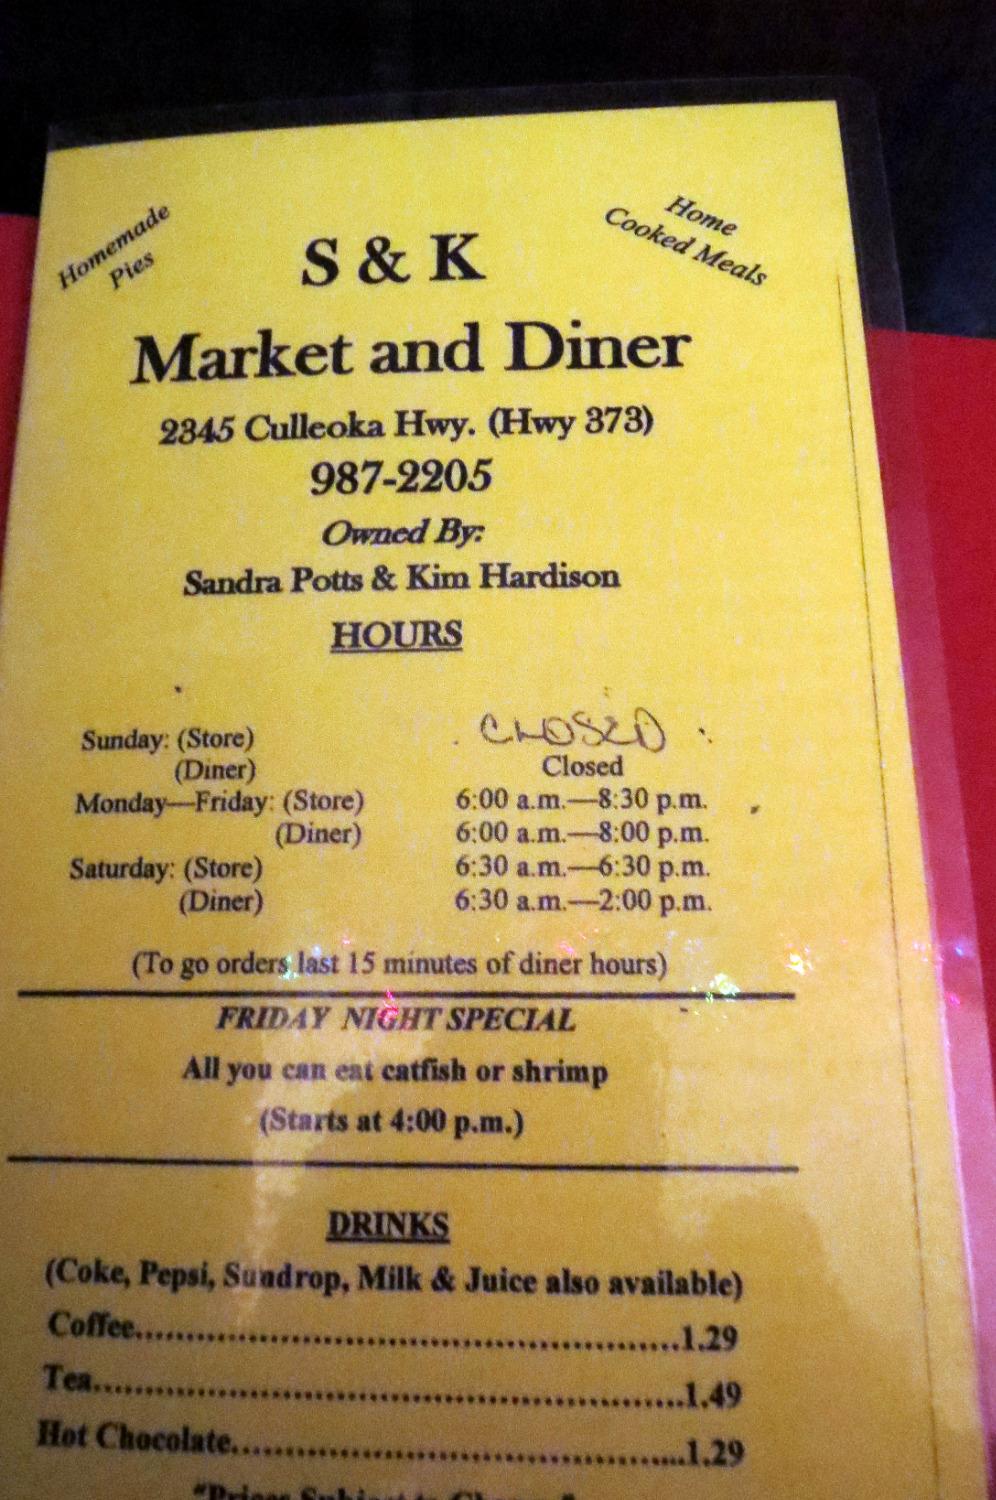 Homemade
Pies
Home
Cooked Meals
S & K
Market and Diner
2345 Culleoka Hwy. (Hwy 373)
987-2205
Owned By:
Sandra Potts & Kim Hardison
HOURS
Sunday: (Store) CLOSED
(Diner) Closed
Monday—Friday: (Store) 6:00 a.m.—8:30 p.m.
(Diner) 6:00 a.m.—8:00 p.m.
Saturday: (Store) 6:30 a.m.—6:30 p.m.
(Diner) 6:30 a.m.—2:00 p.m.
(To go orders last 15 minutes of diner hours)
FRIDAY NIGHT SPECIAL
All you can eat catfish or shrimp
(Starts at 4:00 p.m.)
DRINKS
(Coke, Pepsi, Sundrop, Milk & Juice also available)
Coffee.......................................................1.29
Tea............................................................1.49
Hot Chocolate.............................................1.29
"Prices Subject to Change"